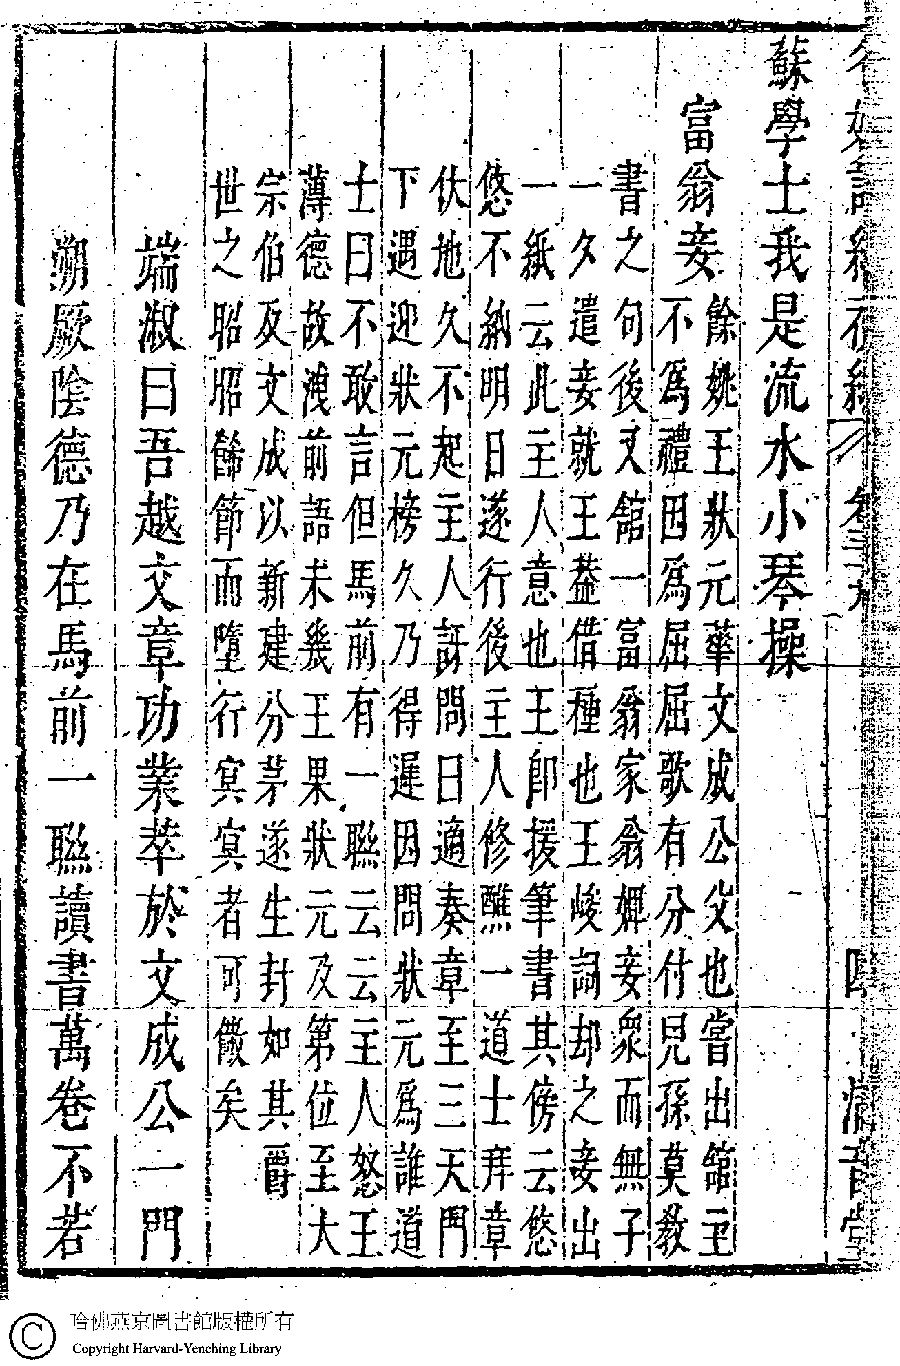 蘇學士我是流水小琴操
富翁妾
餘姚王狀元華文成公父也嘗出舘主
不爲禮因爲屈屈歌有分付兒孫莫教
書之句後又舘一富翁家翁婢妾衆而無子
一夕遣妾就王葢借種也王峻詞却之妾出
一紙云此主人意也王卽援筆書其傍云悠
悠不納明日遂行後主人修醮一道士拜章
伏地久不起主人訝問曰適奏章至三天門
下遇迎狀元榜久乃得遲因問狀元爲誰道
士曰不敢言但馬前有一聯云云主人怒王
薄德故洩前語未幾王果狀元及第位至大
宗伯及文成以新建分茅遂生封如其爵
世之昭昭餙節而墮行冥冥者可儆矣
端淑曰吾越文章功業萃於文成公一門
溯厥陰德乃在馬前一聯讀書萬卷不若
哈佛燕京圖書館版權所有
Copyright Harvard-Yenching Library